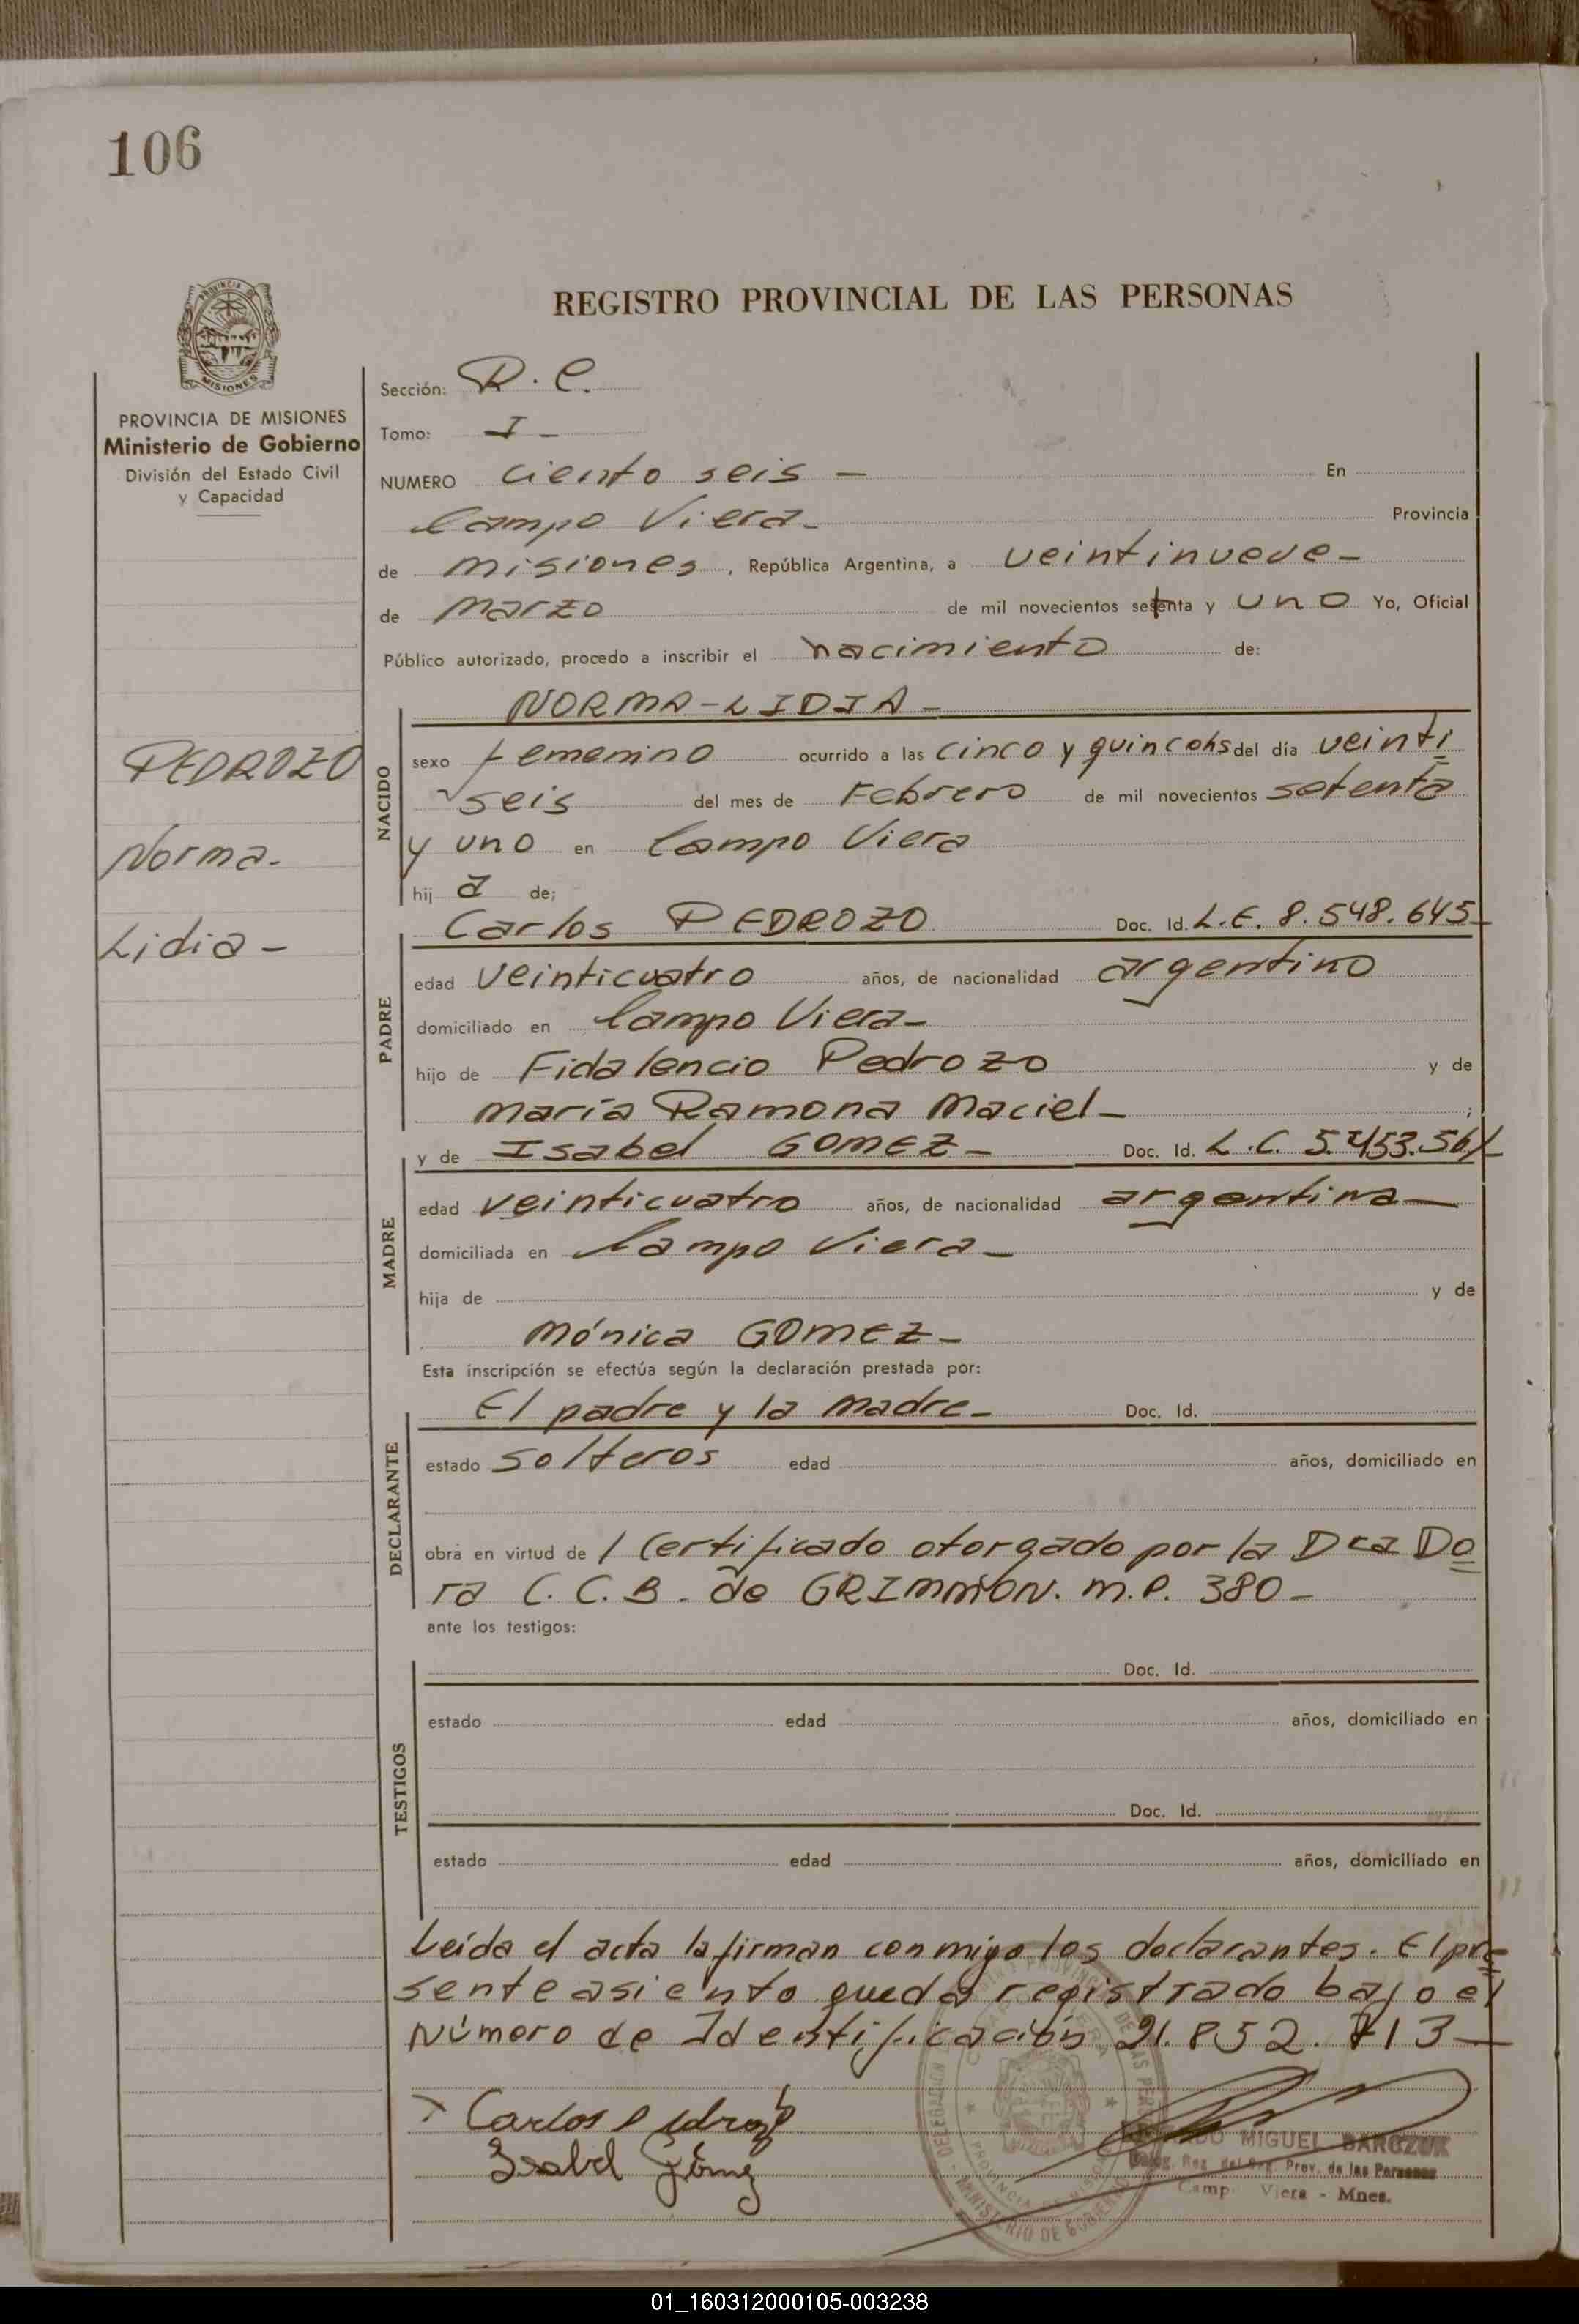 106
PROVINCIA DE
MISIONES
REGISTRO PROVINCIAL DE LAS PERSONAS
PROVINCIA DE MISIONES
Ministerio de Gobierno
División del Estado Civil
y Capacidad
Sección: R. C.
Tomo: I -
NUMERO ciento seis - En
Campo Viera - Provincia
de misiones, República Argentina, a veintinueve -
de marzo de mil novecientos setenta y uno Yo, Oficial
Público autorizado, procedo a inscribir el nacimiento de:
NORMA - LIDIA -
PEDROZO
Norma -
Lidia -
NACIDO
sexo femenino ocurrido a las cinco y quince hs del día veinti
seis del mes de Febrero de mil novecientos setenta
y uno en Campo Viera
hij a de;
Carlos PEDROZO Doc. Id. L.E. 8.548.645 -
PADRE
edad veinticuatro años, de nacionalidad argentino
domiciliado en Campo Viera -
hijo de Fidalencio Pedrozo y de
maría Ramona Maciel - ;
y de Isabel GOMEZ - Doc. Id. L.C.
MADRE
edad veinticuatro años, de nacionalidad argentina -
domiciliada en Campo Viera -
hija de y de
Mónica GOMEZ -
Esta inscripción se efectúa según la declaración prestada por:
El padre y la madre - Doc. Id.
DECLARANTE
estado solteros edad años, domiciliado en
obra en virtud de 1 Certificado otorgado por la Dra Do
ra C. C. B. de M.P. 380 -
ante los testigos:
TESTIGOS
Doc. Id.
estado edad años, domiciliado en
Doc. Id.
estado edad años, domiciliado en
Leída el acta la firman conmigo los declarantes. El pre
sente asiento queda registrado bajo el
Número de Identificación 21.852.713 -
Carlos Pedrozo
Isabel Gómez
MIGUEL BARCZUK
Prov. de las Personas
Camp. Viera - Mnes.
01_160312000105-003238